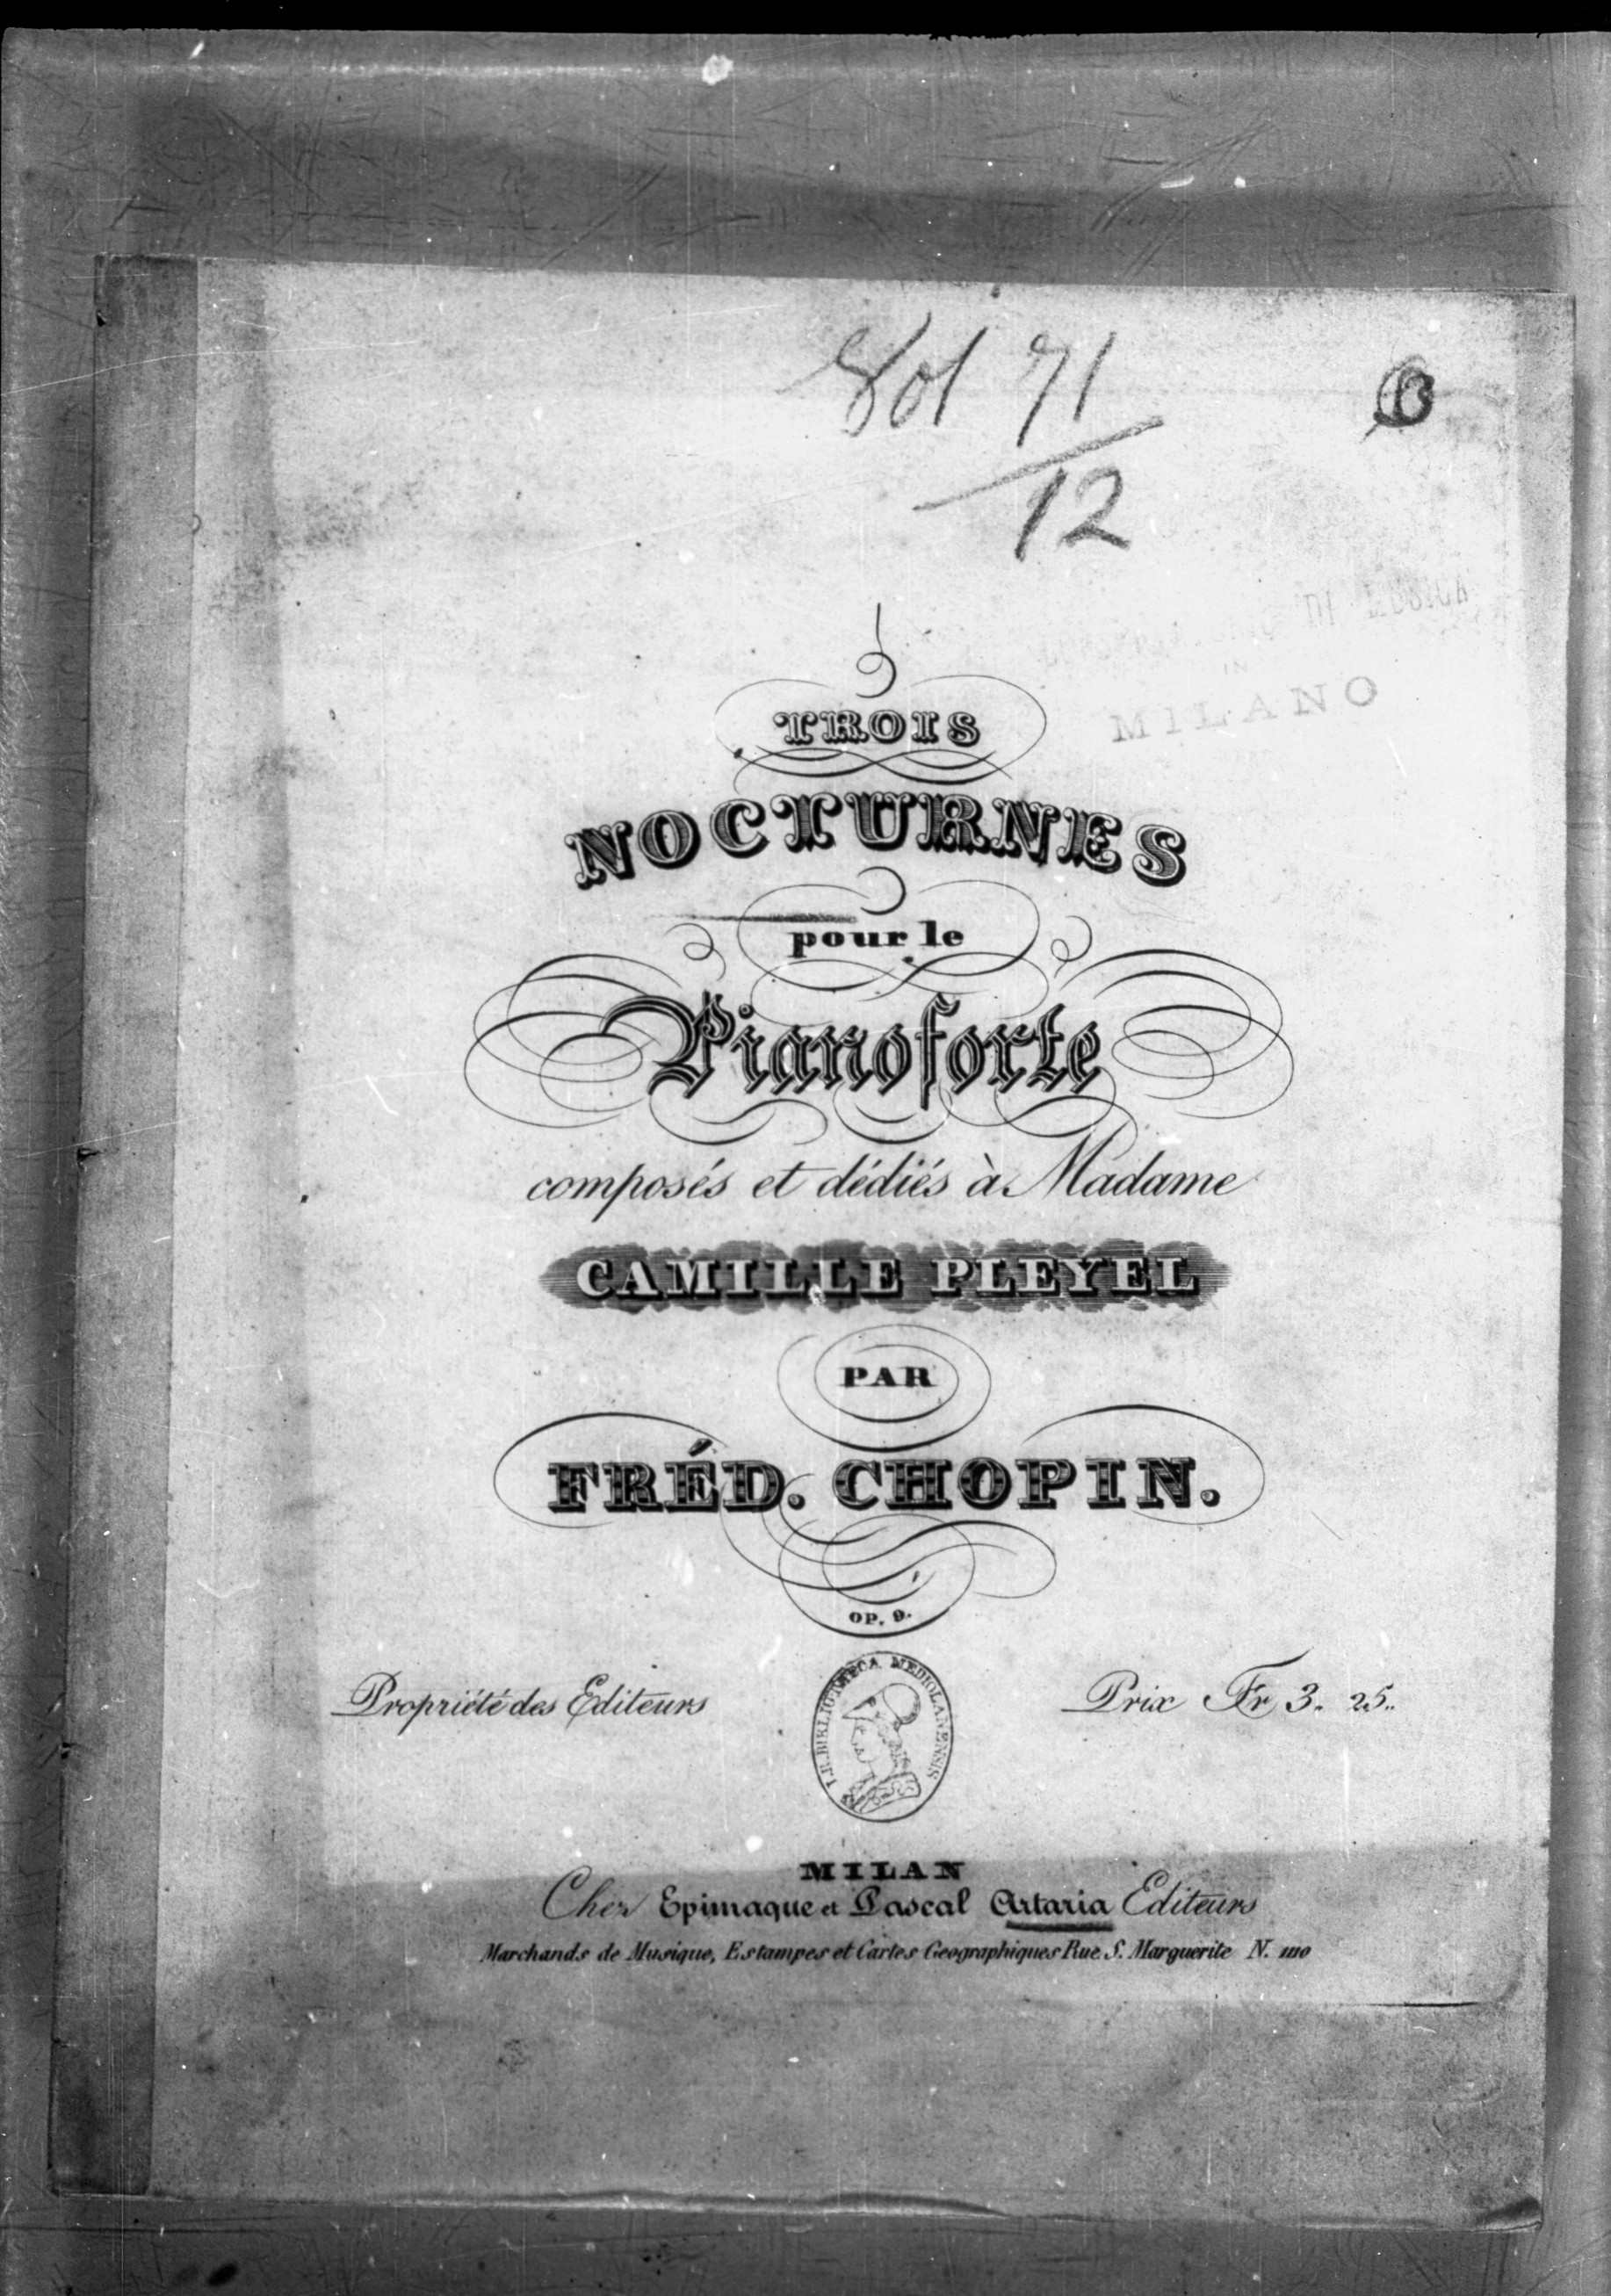 Vol 71
12
DI MUSICA
IN
MILANO
TROIS
NOCTURNES
pour le
Pianoforte
composés et dédiés à Madame
CAMILLE PLEYEL
PAR
FRÉD. CHOPIN.
OP. 9.
Propriété des Editeurs
I.R. BIBLIOTHECA MEDIOLANENSIS
Prix Fr 3. 25..
MILAN
Chez Epimaque et Pascal Artaria Editeurs
Marchands de Musique, Estampes et Cartes Geographiques Rue S. Marguerite N. 1110